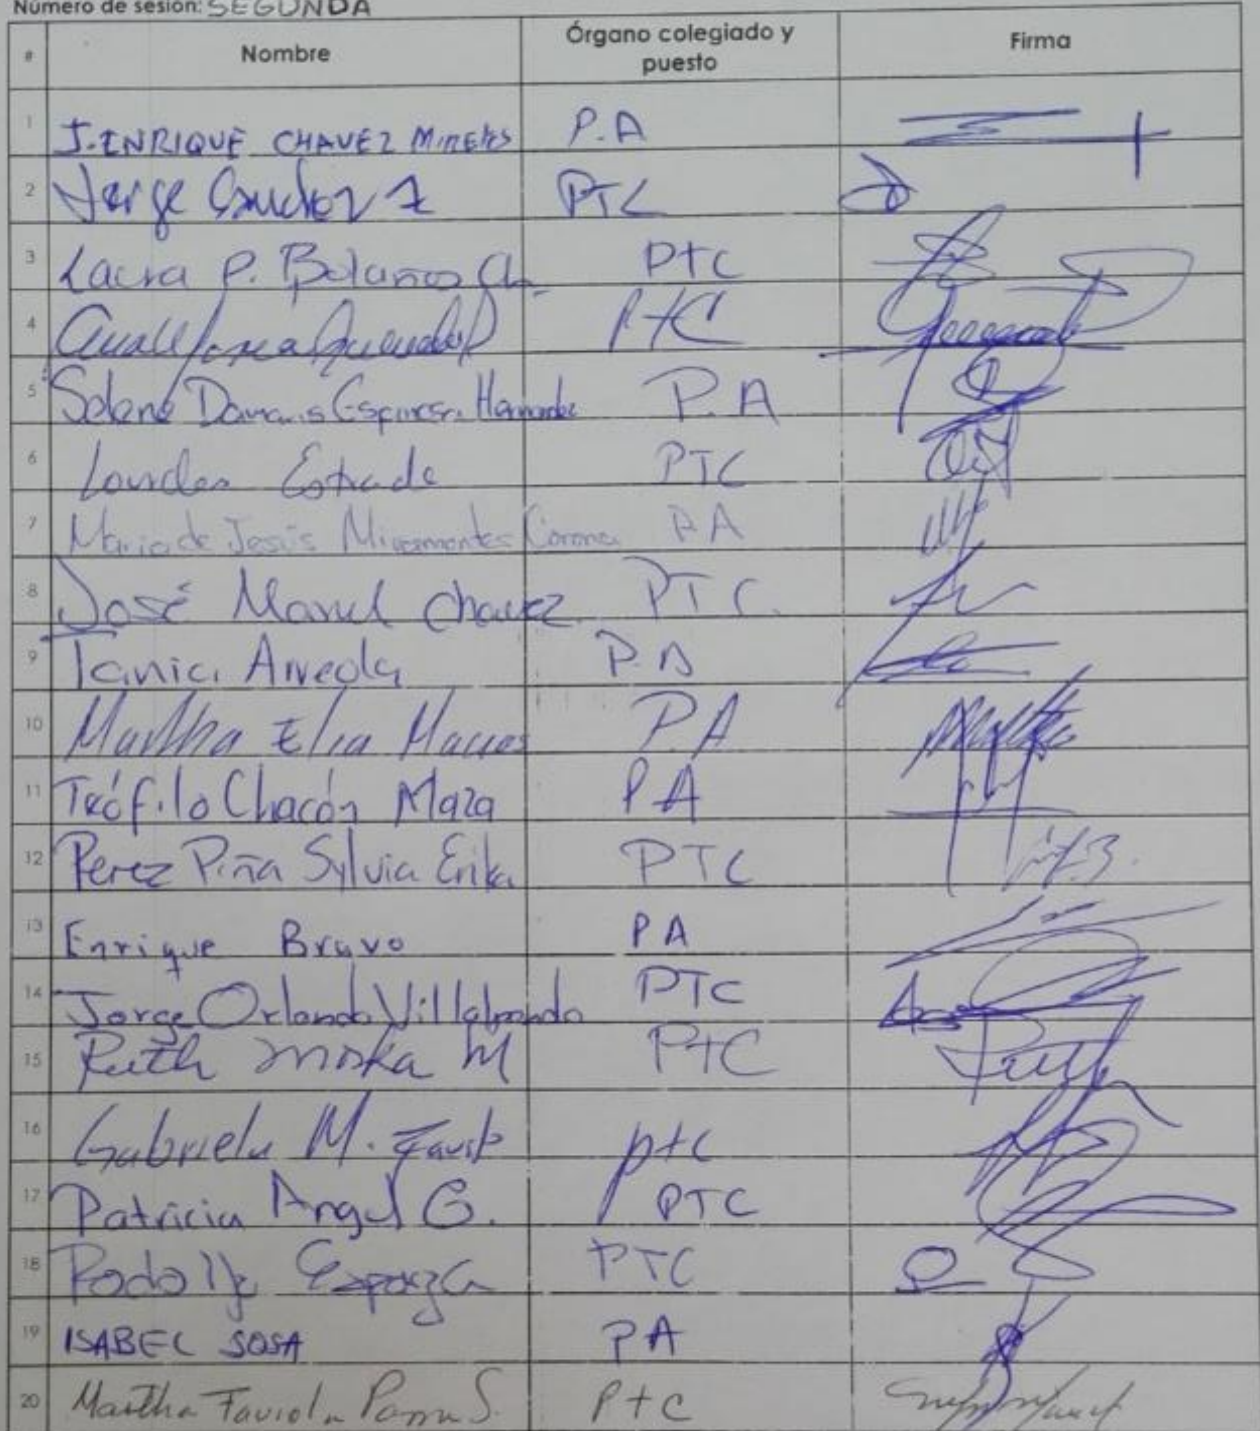 Número de sesión: SEGUNDA
# Nombre Órgano colegiado y puesto Firma
1 J. ENRIQUE CHAVEZ Mireles P.A
2 Jorge PTC
3 Laura P. Bolaños Ch. PTC
4 PtC
5 Selene Damaris Espinosa Hernandez P.A
6 Lourdes Estrada PTC
7 Maria de Jesús Miramontes Corona PA
8 José Manuel Chavez PTC.
9 Tania Arreola P.A
10 Martha Elia Macias P.A
11 Teófilo Chacón Maza PA
12 Perez Piña Sylvia Erika PTC
13 Enrique Bravo PA
14 Jorge Orlando Villalpando PTC
15 Ruth M PTC
16 Gabriela M. ptc
17 Patricia Angel G. PTC
18 Rodolfo Esparza PTC
19 ISABEL SOSA PA
20 Martha Faviola S. PtC